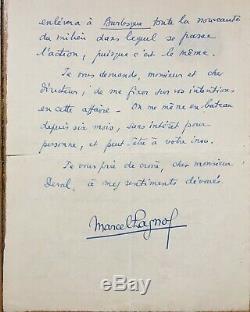 enlèvera à Burlesque toute la nouveauté
du milieu dans lequel se passe
l'action, puisque c'est le même.
Je vous demande, monsieur et cher
directeur, de me fixer sur vos intentions
en cette affaire. On me mène en bateau
depuis six mois, sans intérêt pour
personne, et peut-être à votre insu.
Je vous prie de croire, cher monsieur
Derval, à mes sentiments dévoués
Marcel Pagnol